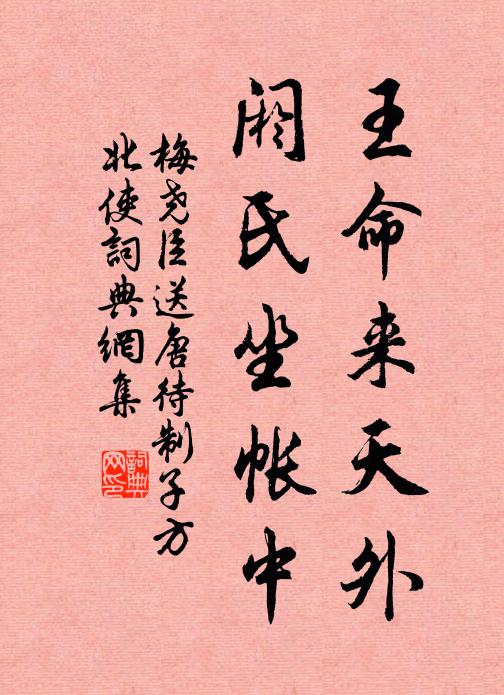 王命来天外
阏氏坐帐中
梅尧臣送唐待制子方
北使詞典網集
詞典网印